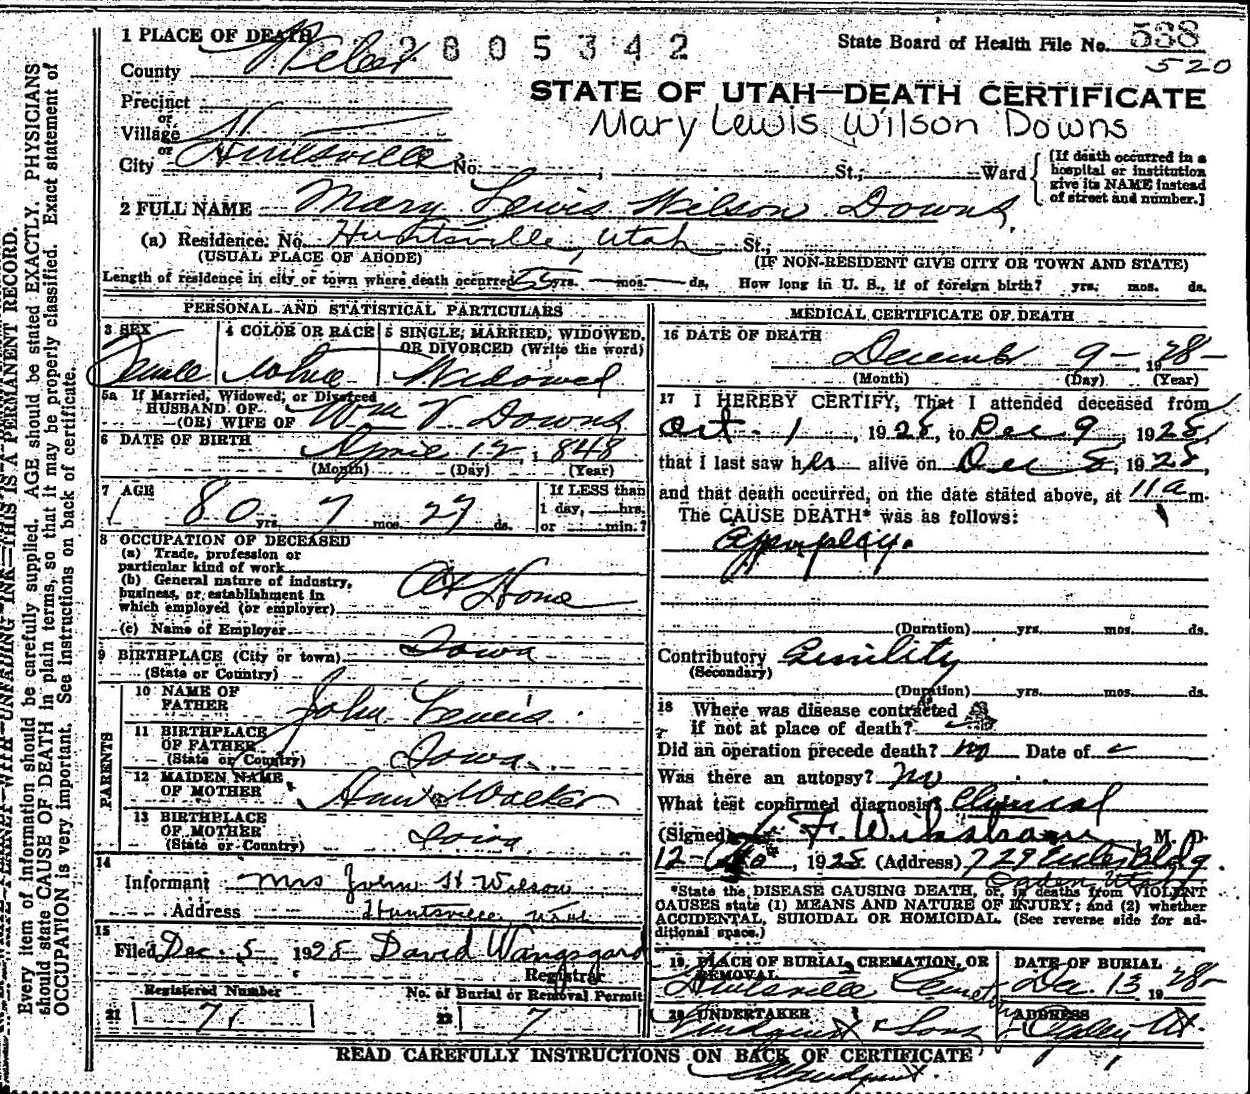 2805342
State Board of Health File No. 538
520
STATE OF UTAH—DEATH CERTIFICATE
Mary Lewis Wilson Downs
1 PLACE OF DEATH
County Weber
Precinct
or
Village
or
City Huntsville No. ; St.; Ward
[If death occurred in a hospital or institution give its NAME instead of street and number.]
2 FULL NAME Mary Lewis Wilson Downs
(a) Residence. No. Huntsville, Utah St.,
(USUAL PLACE OF ABODE) (IF NON-RESIDENT GIVE CITY OR TOWN AND STATE)
Length of residence in city or town where death occurred 55 yrs. mos. ds. How long in U. S., if of foreign birth? yrs. mos. ds.
PERSONAL AND STATISTICAL PARTICULARS
3 SEX 4 COLOR OR RACE 5 SINGLE, MARRIED, WIDOWED, OR DIVORCED (Write the word)
Female White Widowed
5a If Married, Widowed, or Divorced
HUSBAND OF
(OR) WIFE OF Wm V Downs
6 DATE OF BIRTH April 12, 1848
(Month) (Day) (Year)
7 AGE
80 yrs. 7 mos. 27 ds.
If LESS than
1 day, hrs.
or min.?
8 OCCUPATION OF DECEASED
(a) Trade, profession or
particular kind of work
(b) General nature of industry,
business, or establishment in
which employed (or employer) At Home
(c) Name of Employer
9 BIRTHPLACE (City or town) Iowa
(State or Country)
PARENTS
10 NAME OF
FATHER John Lewis
11 BIRTHPLACE
OF FATHER
(State or Country) Iowa
12 MAIDEN NAME
OF MOTHER Ann Walker
13 BIRTHPLACE
OF MOTHER
(State or Country) Iowa
14
Informant Mrs John H Wilson
Address Huntsville, Utah
15
Filed Dec. 5 1928 David Wangsgard
Registrar
Registered Number No. of Burial or Removal Permit
21 71 22 7
MEDICAL CERTIFICATE OF DEATH
16 DATE OF DEATH
December 9- 1928-
(Month) (Day) (Year)
17 I HEREBY CERTIFY, That I attended deceased from
Oct. 1, 1928, to Dec 9, 1928,
that I last saw her alive on Dec 8, 1928,
and that death occurred, on the date stated above, at 11 a m.
The CAUSE DEATH* was as follows:
Apoplexy.
(Duration) yrs. mos. ds.
Contributory Senility
(Secondary)
(Duration) yrs. mos. ds.
18 Where was disease contracted
if not at place of death?
Did an operation precede death? no Date of
Was there an autopsy? no
What test confirmed diagnosis? Clinical
(Signed) M. D.
12- 1928 (Address) 729 Bldg.
Ogden Utah
*State the DISEASE CAUSING DEATH, or, in deaths from VIOLENT
CAUSES state (1) MEANS AND NATURE OF INJURY; and (2) whether
ACCIDENTAL, SUICIDAL OR HOMICIDAL. (See reverse side for additional space.)
19 PLACE OF BURIAL, CREMATION, OR REMOVAL DATE OF BURIAL
Huntsville Cemetery Dec. 13 1928-
20 UNDERTAKER ADDRESS
Lindquist & Sons Ogden Ut.
READ CAREFULLY INSTRUCTIONS ON BACK OF CERTIFICATE
Every item of information should be carefully supplied. AGE should be stated EXACTLY. PHYSICIANS
should state CAUSE OF DEATH in plain terms, so that it may be properly classified. Exact statement of
OCCUPATION is very important. See instructions on back of certificate.
WRITE PLAINLY WITH UNFADING INK—THIS IS A PERMANENT RECORD.